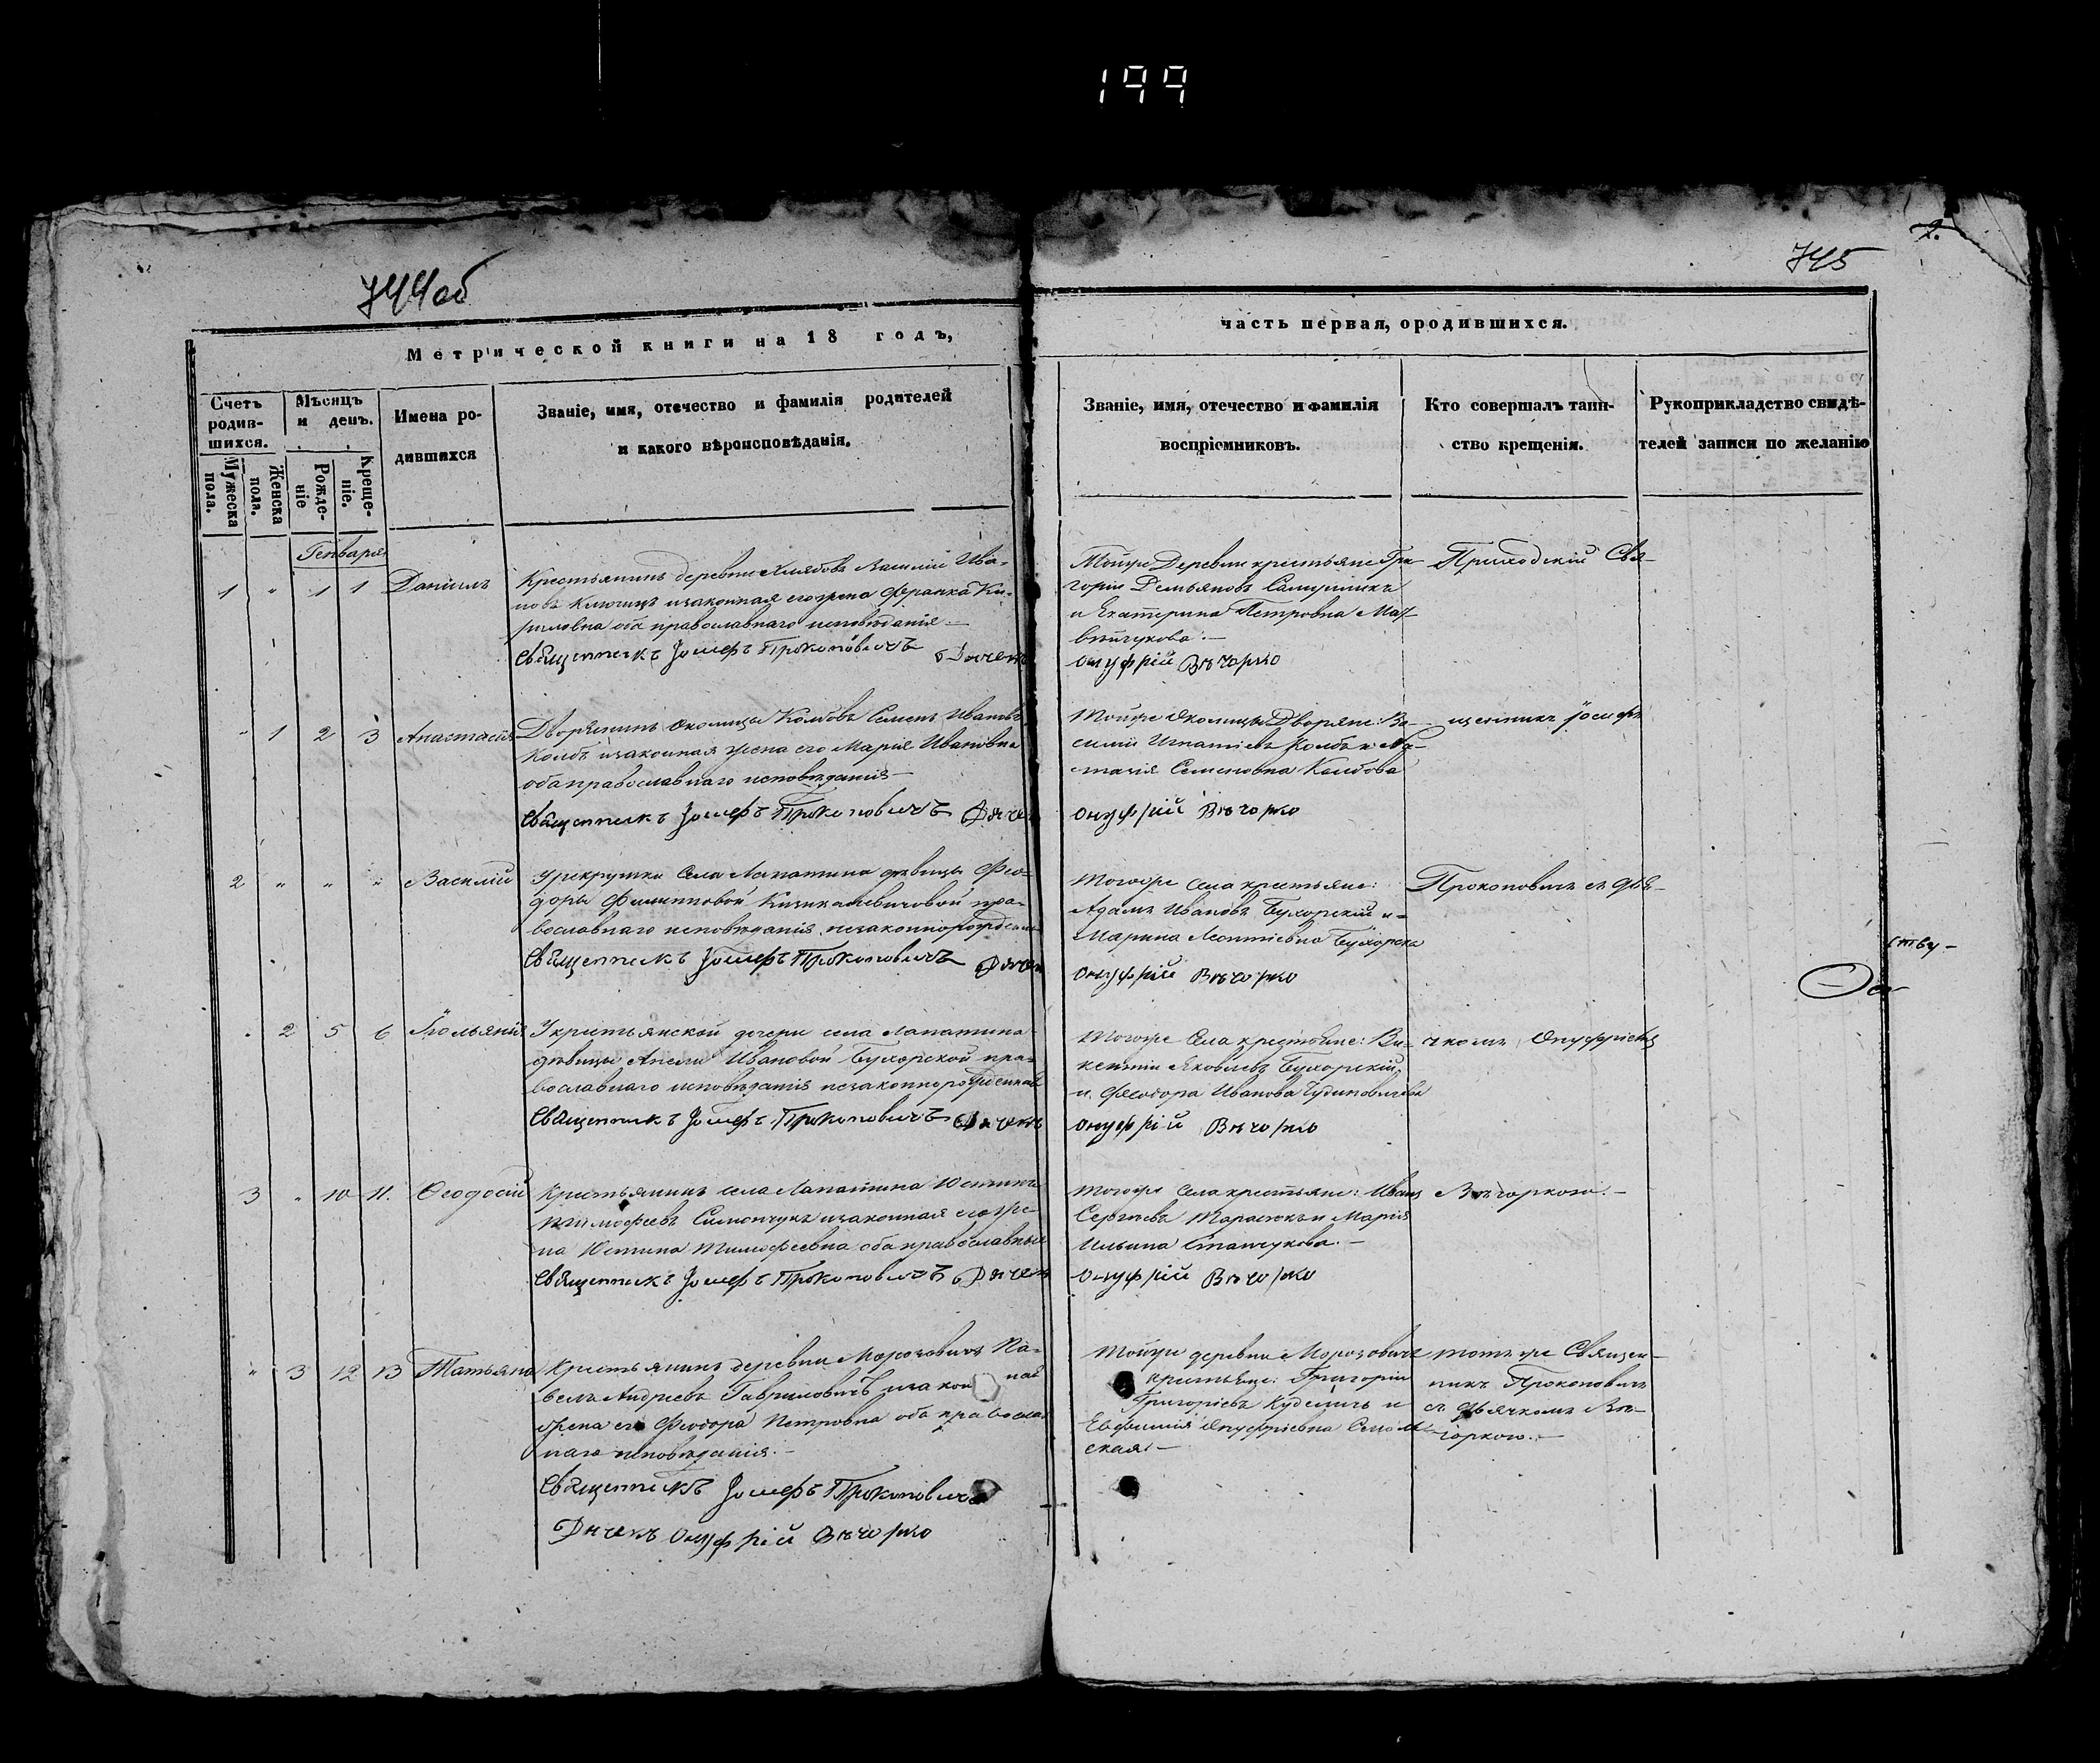 199
744об
745
2.
Метрической книги на 18 годъ,
часть первая, ородившихся.
Счетъ родив-шихся.
Мужеска пола.
Женска пола.
Мѣсяцъ и день.
Рожде-ніе
Креще-ніе.
Имена ро-
дившихся
Званіе, имя, отечество и фамилія родителей
и какого вѣроисповѣданія.
Званіе, имя, отечество и фамилія
воспріемниковъ.
Кто совершалъ таин-
ство крещенія.
Рукоприкладство свидѣ-
телей записи по желанію
Генваря
1 " 1 1 Даніилъ
Крестьянинъ деревни Василій Ива-
новъ изаконная его жена Франка Ки-
риловна оба православнаго исповѣданія —
Священникъ Іосифъ Прокоповичъ Дячекъ
Тойже Деревни крестьяне Гри-
горій Демьяновъ
и Екатерина Петровна Мат-
вѣйчукова. —
Онуфрій Вѣчорко
Приходскій Свя-
" 1 2 3 Анастасія
Дворянинъ Околицы Колбовъ Семенъ
Колбъ изаконная жена его Марія Ивановна
оба православнаго исповѣданія —
Священникъ Іосифъ Прокоповичъ Дячекъ
Тойже Околицы Дворяне: Ва-
силій Игнатіевъ Колбъ и
Семеновна Колбова
Онуфрій Вѣчорко
щенникъ Іосифъ
2 " " " Василій
Урекрутки Села Лапатина дѣвицы Фео-
доры Филипповой пра-
вославнаго исповѣданія незаконнорожденный
Священникъ Іосифъ Прокоповичъ Дячекъ
Тогоже села крестьяне:
Адамъ Ивановъ Бухорскій и
Марина Леонтіевна Бухорска
Онуфрій Вѣчорко
Прокоповичъ съ дья-
ству —
" 2 5 6
Укрестьянской дочери села Лапатина
дѣвицы Ивановой Бухорской пра-
вославнаго исповѣданія незаконнорожденная
Священникъ Іосифъ Прокоповичъ Дячекъ
Тогоже Села крестьяне: Ви-
кентій Яковлевъ Бухорскій,
и Феодора Иванова
Онуфрій Вѣчорко
чкомъ Онуфріемъ
3 " 10 11. Ѳеодосій
Крестьянинъ села Лапатина Юстинъ
Тимофеевъ Симончукъ изаконная его же-
на Юстина Тимофеевна оба православныя
Священникъ Іосифъ Прокоповичъ Дячекъ
Тогоже Села крестьяне: Иванъ
Сергѣевъ Тарасюкъ и Марія
Ильина Станчукова. —
Онуфрій Вѣчорко
Вѣчоркою. —
" 3 12 13 Татьяна
Крестьянинъ деревни Морозовичъ Па-
велъ Андреевъ Гавриловичъ изаконная
жена его Феодора Петровна оба православ-
наго исповѣданія. —
Священникъ Іосифъ Прокоповичъ
Дячекъ Онуфрій Вѣчорко
Тойже деревни Морозовичъ
крестьяне: Григорій
Григоріевъ Куделичъ и
Евфимія Онуфріевна
ская. —
тотъ же Священ-
никъ Прокоповичъ
съ дьячкомъ Вѣ-
чоркою. —